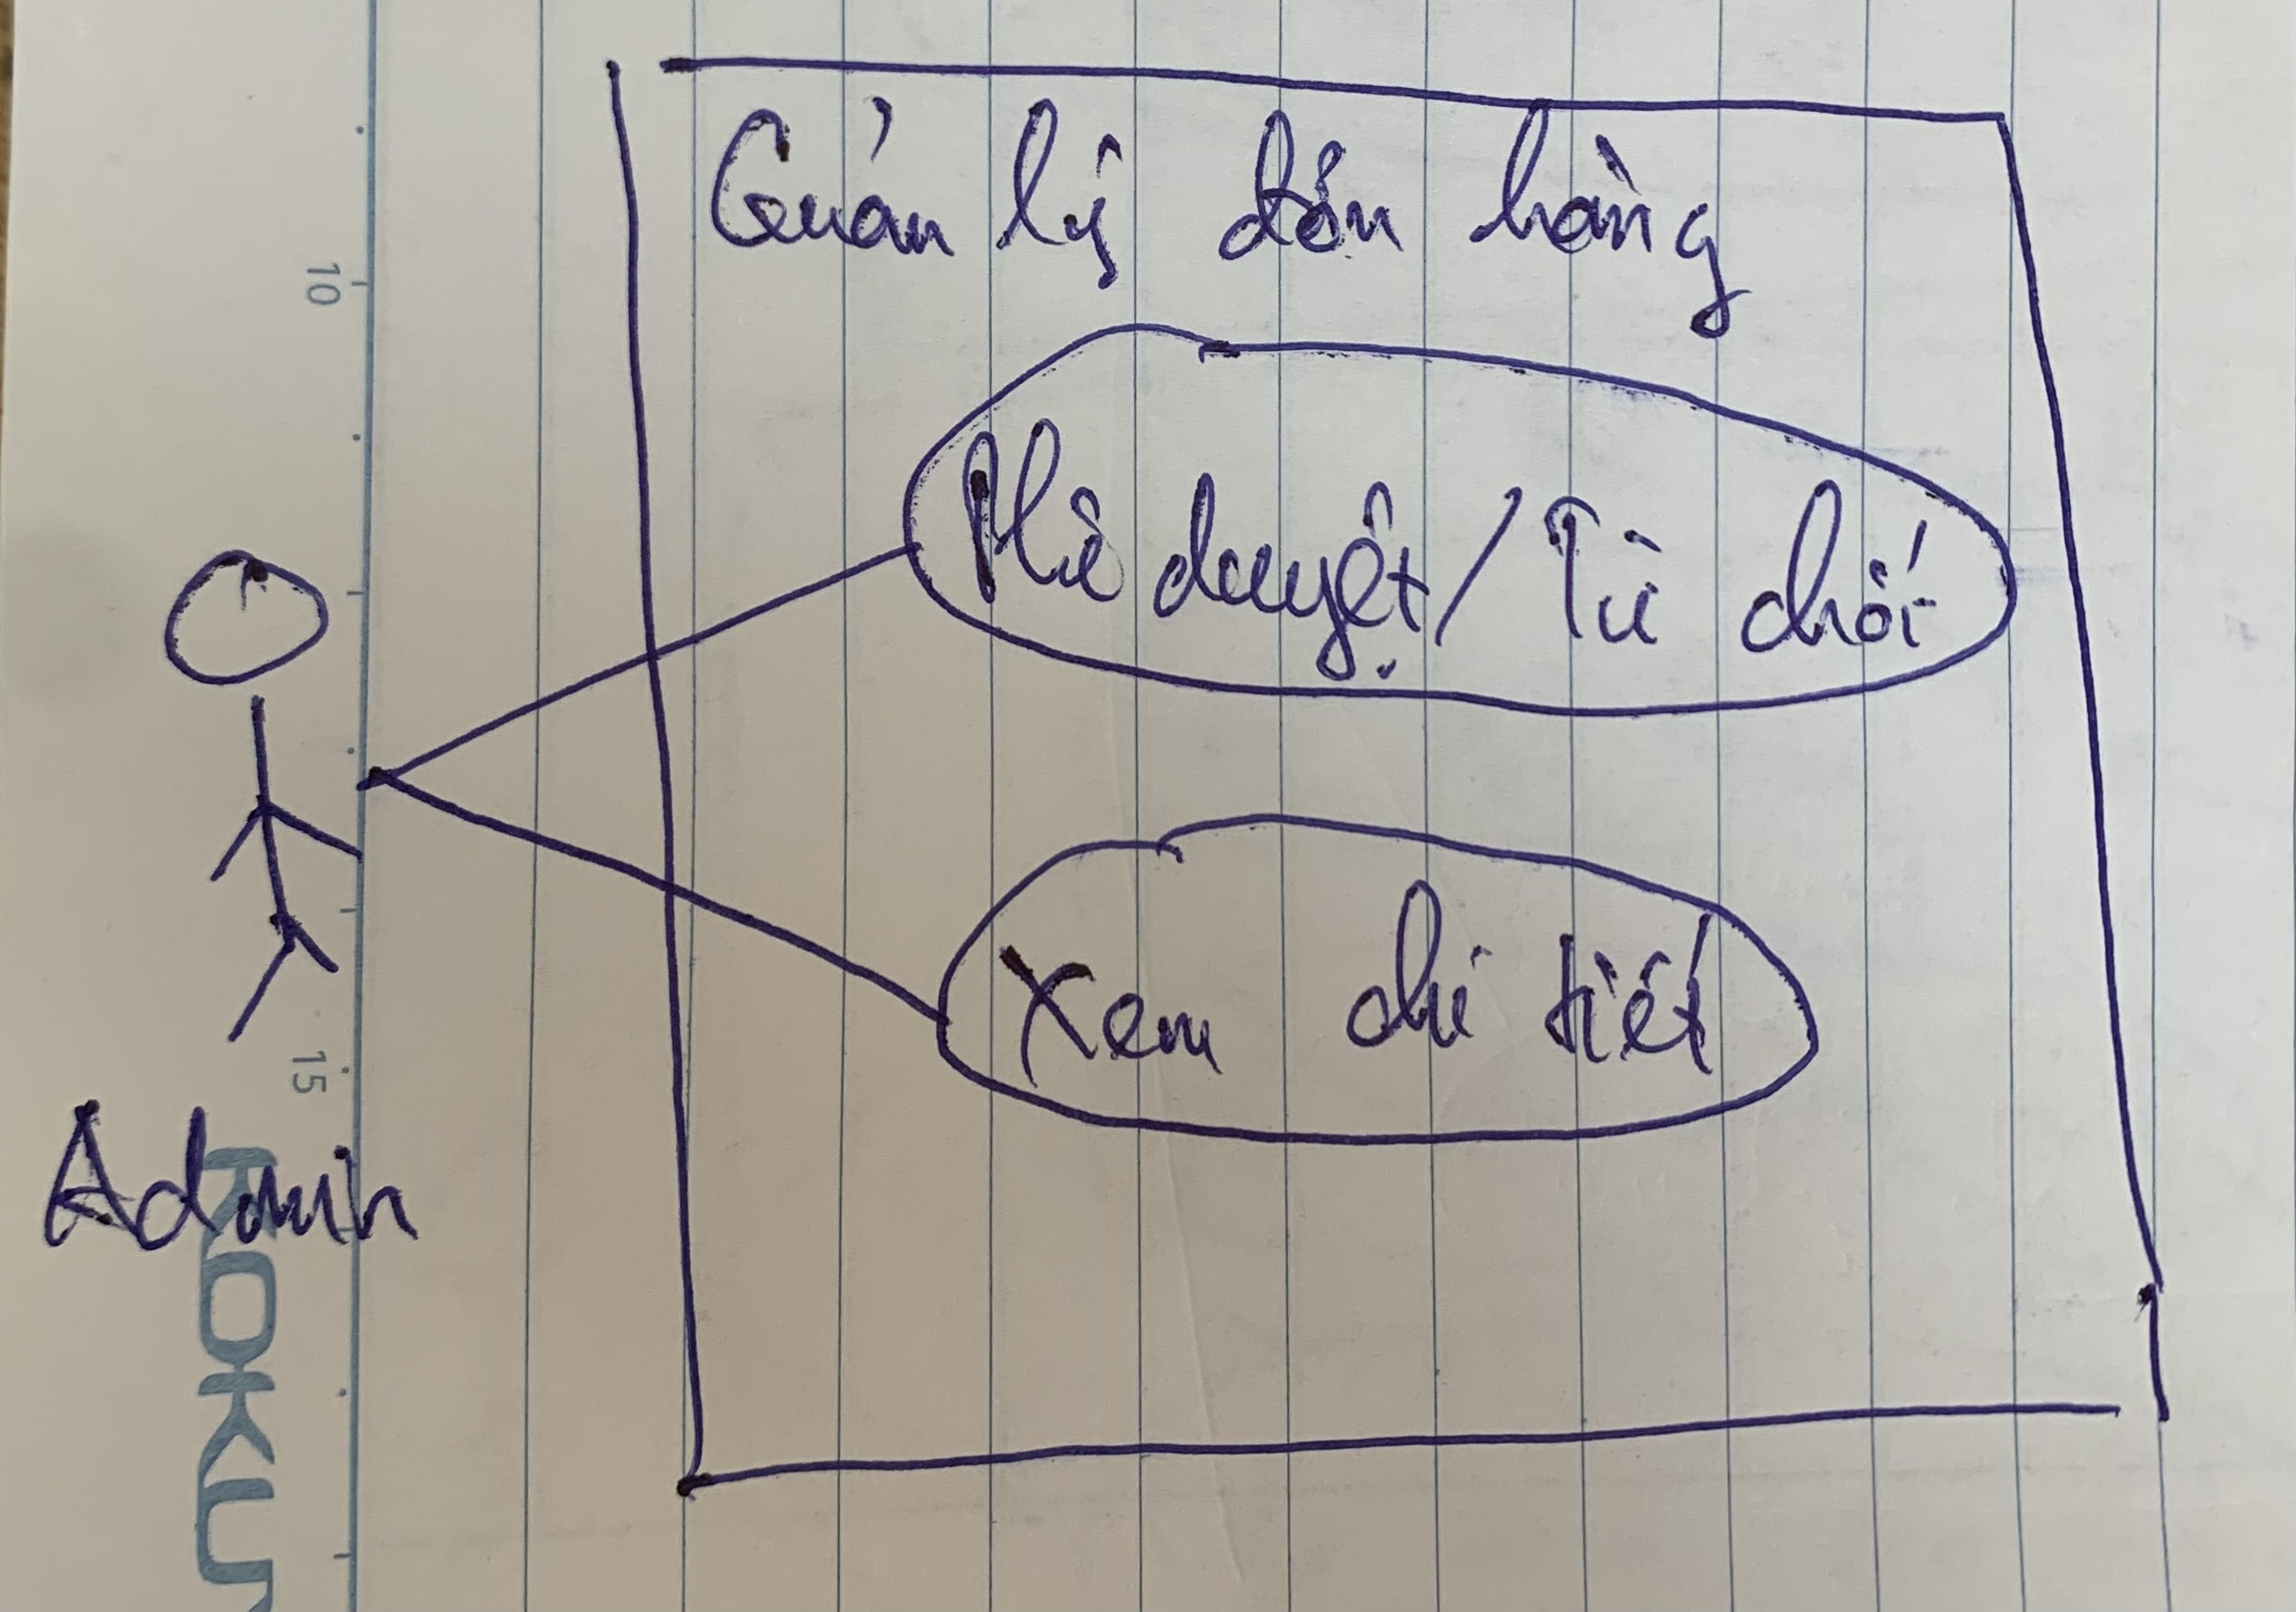 Quản lý đơn hàng
Phê duyệt / Từ chối
Xem chi tiết
Admin
10
15
KOKU